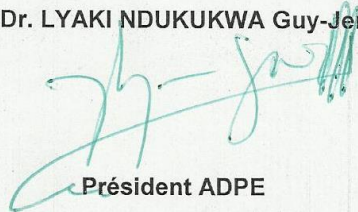 Dr. LYAKI NDUKUKWA Guy-Je
Président ADPE